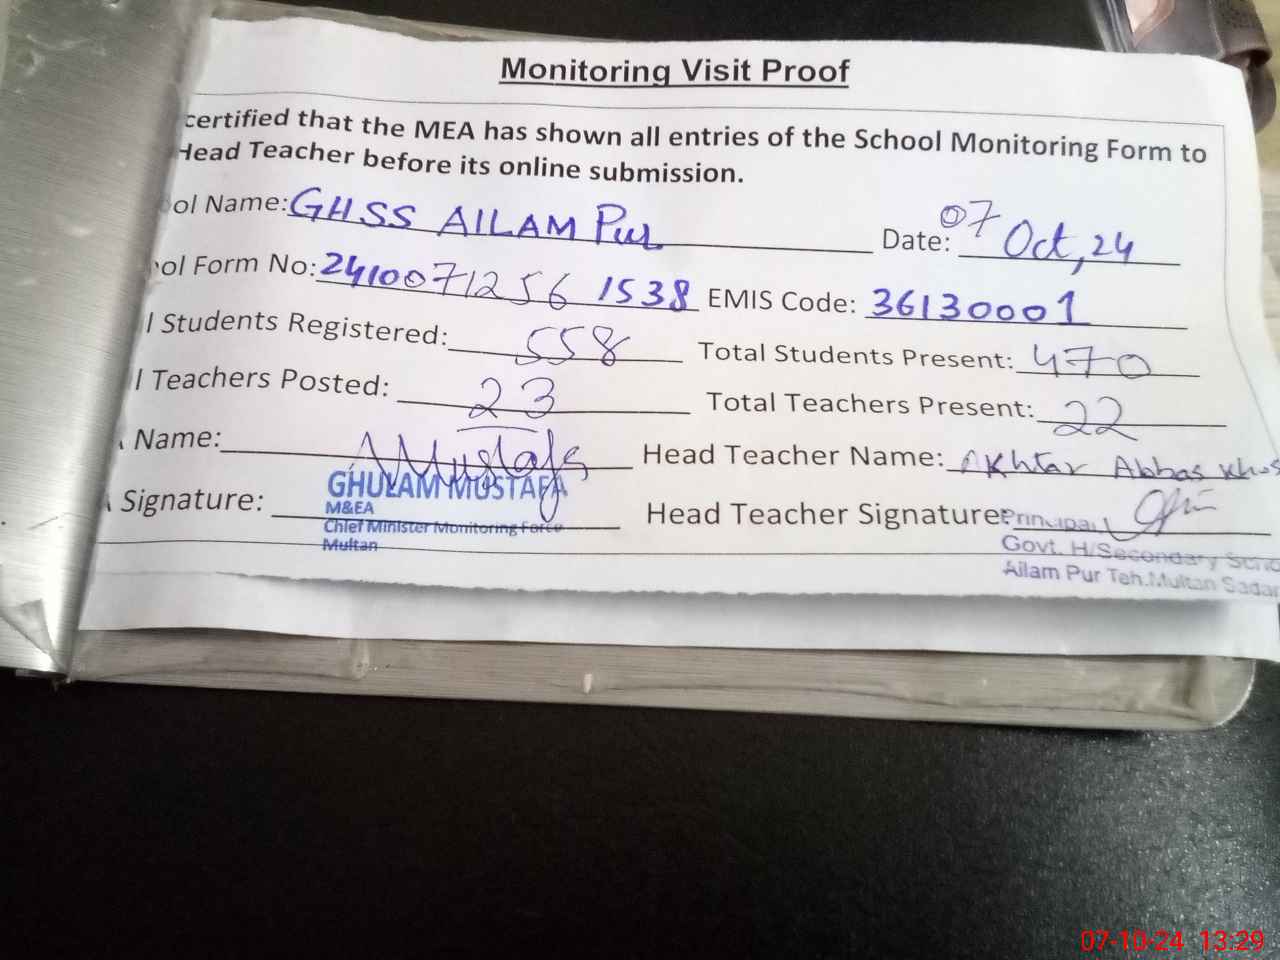 Monitoring Visit Proof
certified that the MEA has shown all entries of the School Monitoring Form to
Head Teacher before its online submission.
ol Name: GHSS AILAM Pur Date: 07 Oct, 24
ol Form No: 24100712561538 EMIS Code: 36130001
l Students Registered: 558 Total Students Present: 470
l Teachers Posted: 23 Total Teachers Present: 22
Name: Mustafa Head Teacher Name: Akhtar Abbas
GHULAM MUSTAFA
Signature: Head Teacher Signature:
M&EA
Chief Minister Monitoring Force
Multan
Principal
Govt. H/Secondary Scho
Ailam Pur Teh.Multan Sadar
07-10-24 13:29